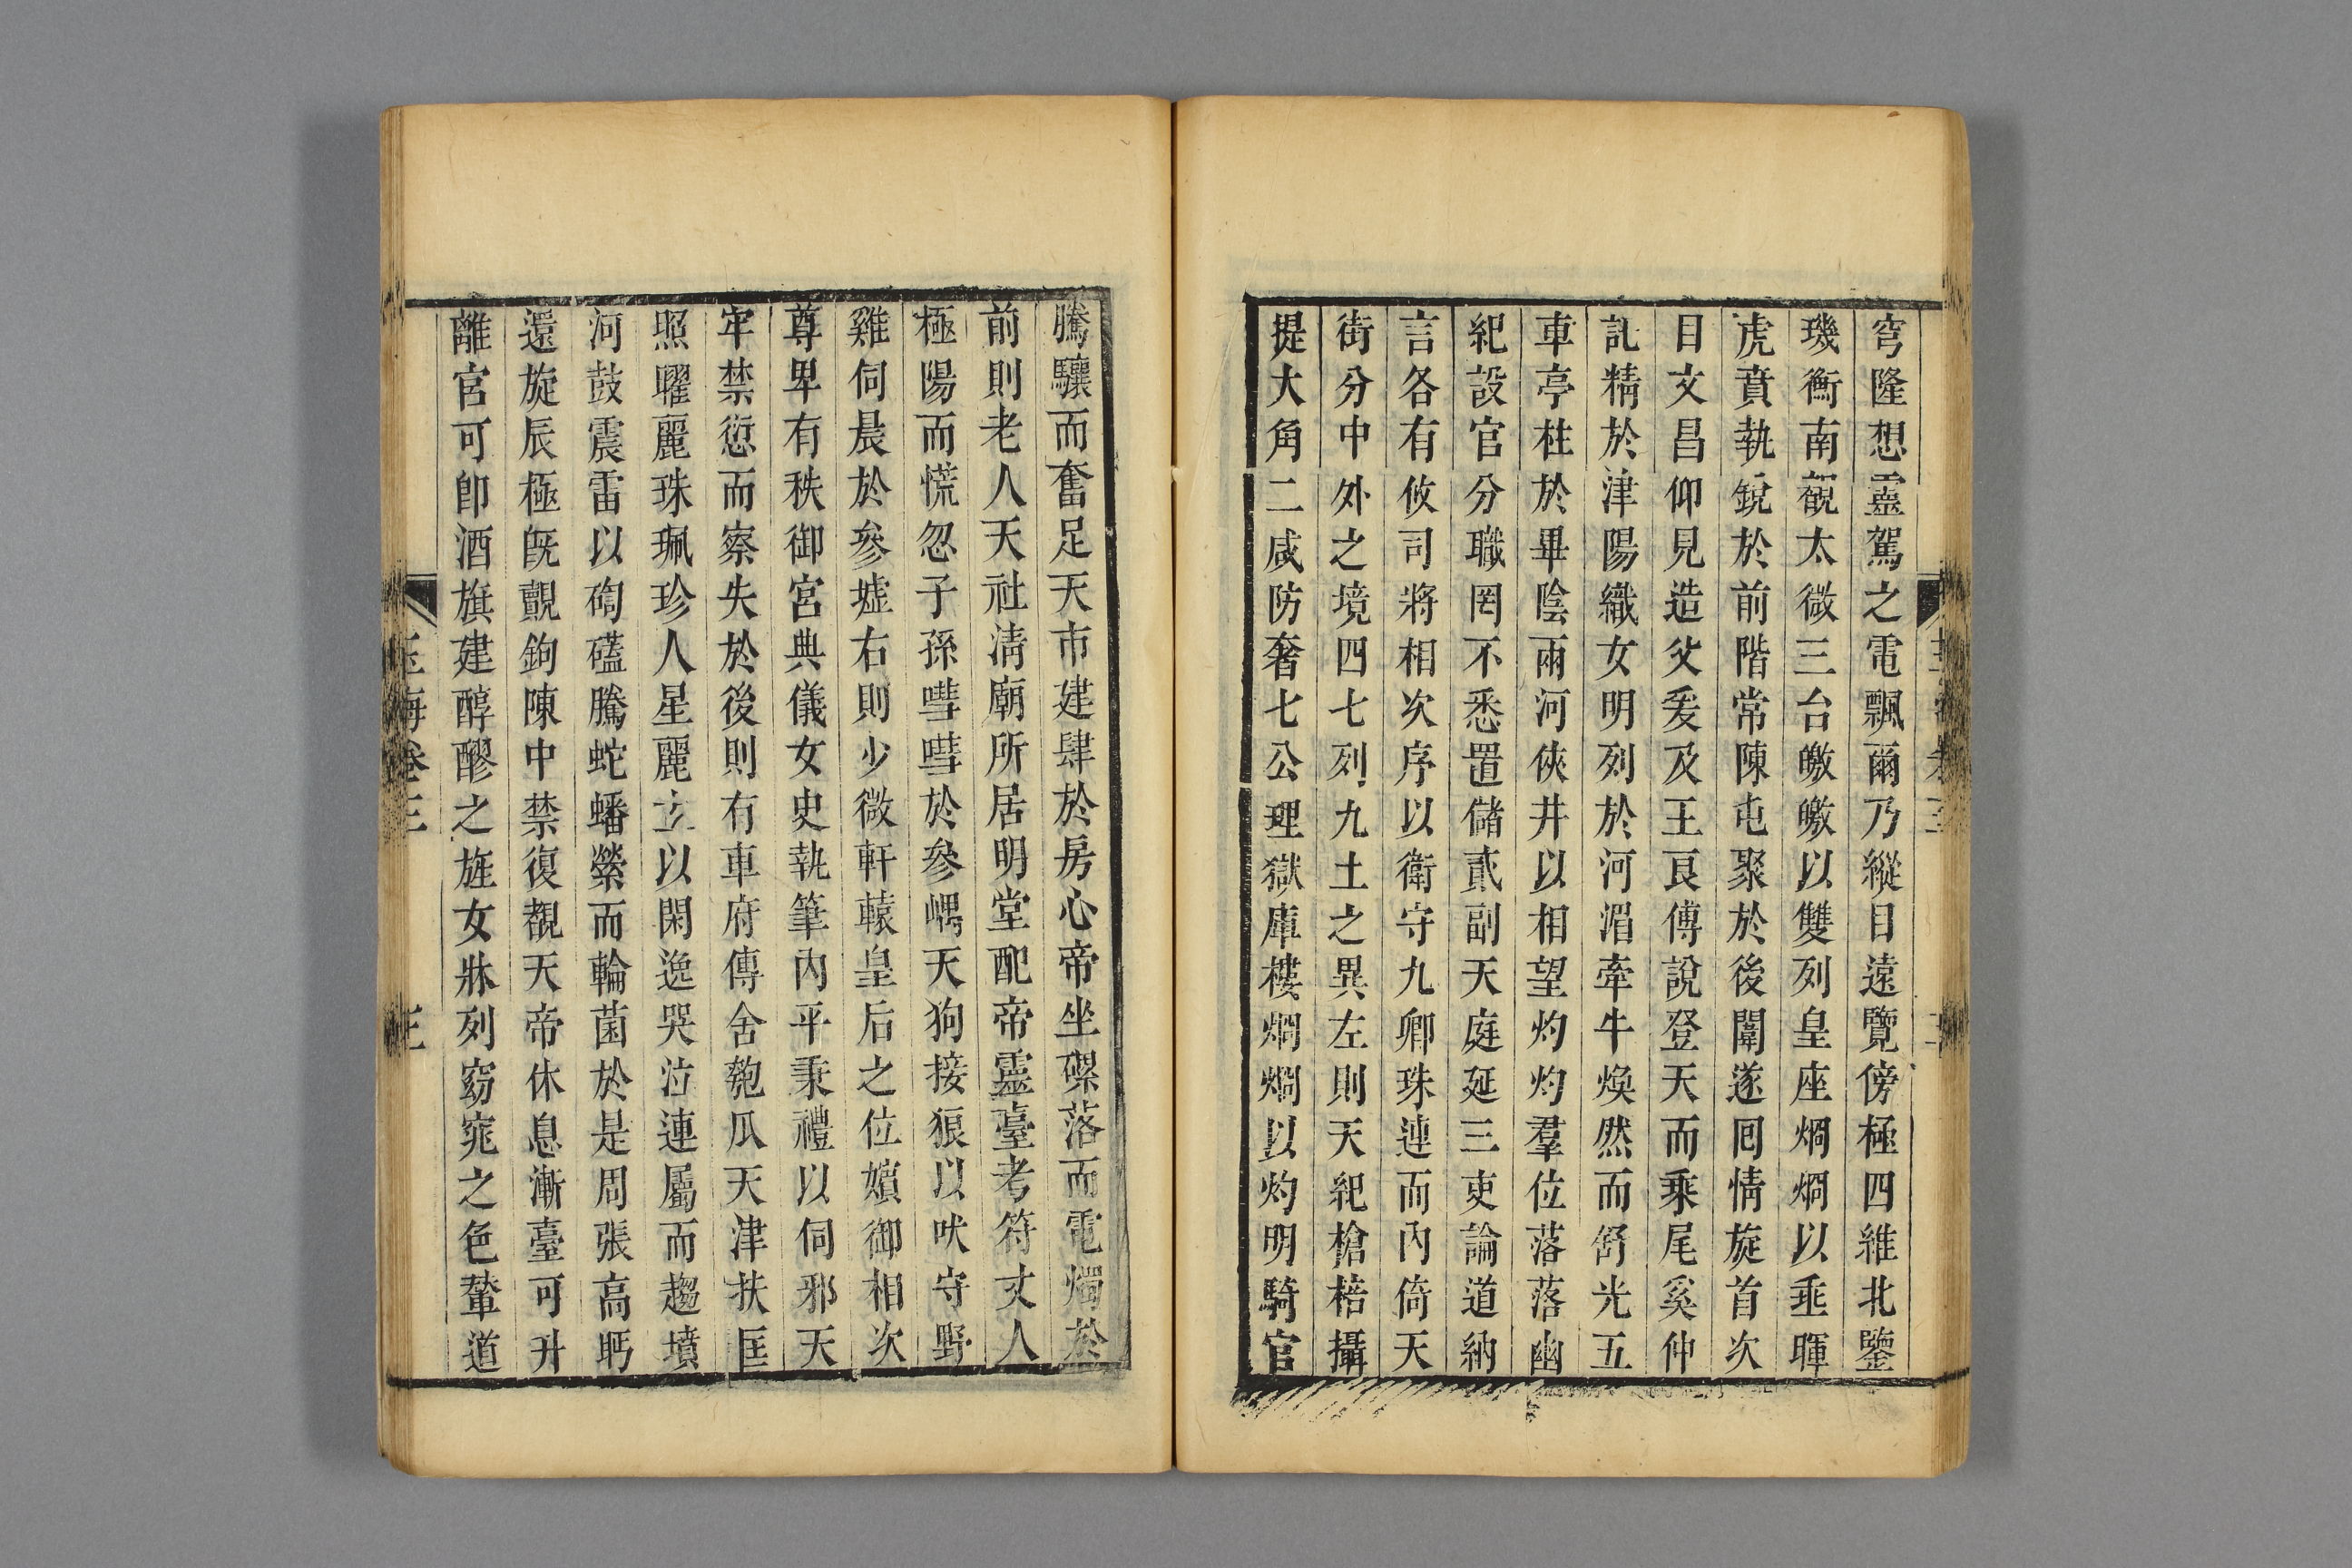 穹隆想靈駕之電飄爾乃縱目遠覽傍極四維北鑒
璣衡南覩太微三台皦皦以雙列皇座烱烱以垂暉
虎賁執銳於前階常陳屯聚於後闈遂囘情旋首次
目文昌仰見造父爰及王良傅說登天而乘尾奚仲
託精於津陽織女明列於河湄牽牛煥然而舒光五
車亭柱於畢陰兩河俠井以相望灼灼羣位落落幽
紀設官分職罔不悉置儲貳副天庭延三吏論道納
言各有攸司將相次序以衛守九卿珠連而內倚天
街分中外之境四七列九土之異左則天紀槍棓攝
提大角二咸防奢七公理獄庫樓烱烱以灼明騎官
騰驤而奮足天市建肆於房心帝坐磔落而電燭於
前則老人天社清廟所居明堂配帝靈臺考符丈人
極陽而慌忽子孫嘒嘒於參嵎天狗接狼以吠守野
雞伺晨於參墟右則少微軒轅皇后之位嬪御相次
尊卑有秩御宮典儀女史執筆內平秉禮以伺邪天
牢禁愆而察失於後則有車府傳舍匏瓜天津扶匡
照曜麗珠珮珍人星麗玄以閑逸哭泣連屬而趨墳
河鼓震雷以硡礚騰蛇蟠縈而輪菌於是周張高眄
還旋辰極旣覿鉤陳中禁復觀天帝休息漸臺可升
離宮可卽酒旗建醇醪之旌女牀列窈窕之色輦道
玉海卷三
三